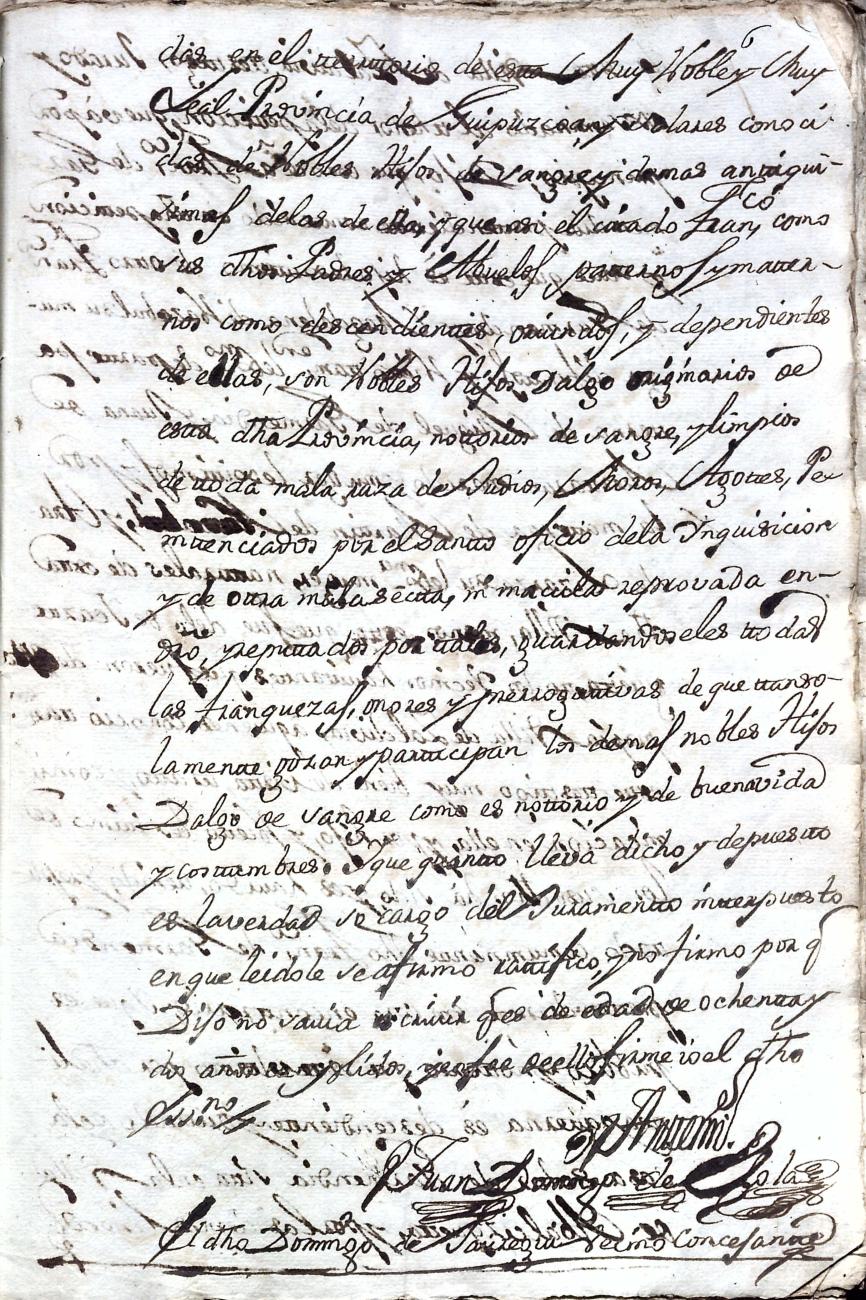 das en el territorio de esta Muy Noble y Muy
Leal Provincia de Guipuzcoa, y solares conoci
dos de Nobles Hijos de sangre y demas antigui-
simas delas de ella, y que asi el citado Franco, como
sus dhos Padres y Abuelos patternos y matter-
nos como descendientes, oriundos, y dependientes
de ellas, son Nobles Hijos Dalgo originarios de
esta dha Provincia, nottorios de sangre, y limpios
de ttoda mala raza de Judios, Moros, Agottes, Pe
nittenciados por el Santto oficio dela Ynquisicion
y de ottra mala secta, ni macula reprovada en-
dro, y reputtados por ttales, guardandoseles ttodas
las franquezas, onores y prerrogativas de que ttanso-
lamente gozan y participan los demas nobles Hijos
Dalgo de sangre como es nottorio y de buena vida
y costtumbres. Y que quantto lleva dicho y depuestto
es la verdad so cargo del Juramentto intterpuesto
en que leidole se afirmo rattifico, y no firmo por q
Dijo no savia escrivir q es de edad de ochentta y
dos años cumplidos, y en fee de ello firme io el dho
Essno
Antemi.
Juan Domingo de
El dho Domingo de Jauregui Vecino Concejante